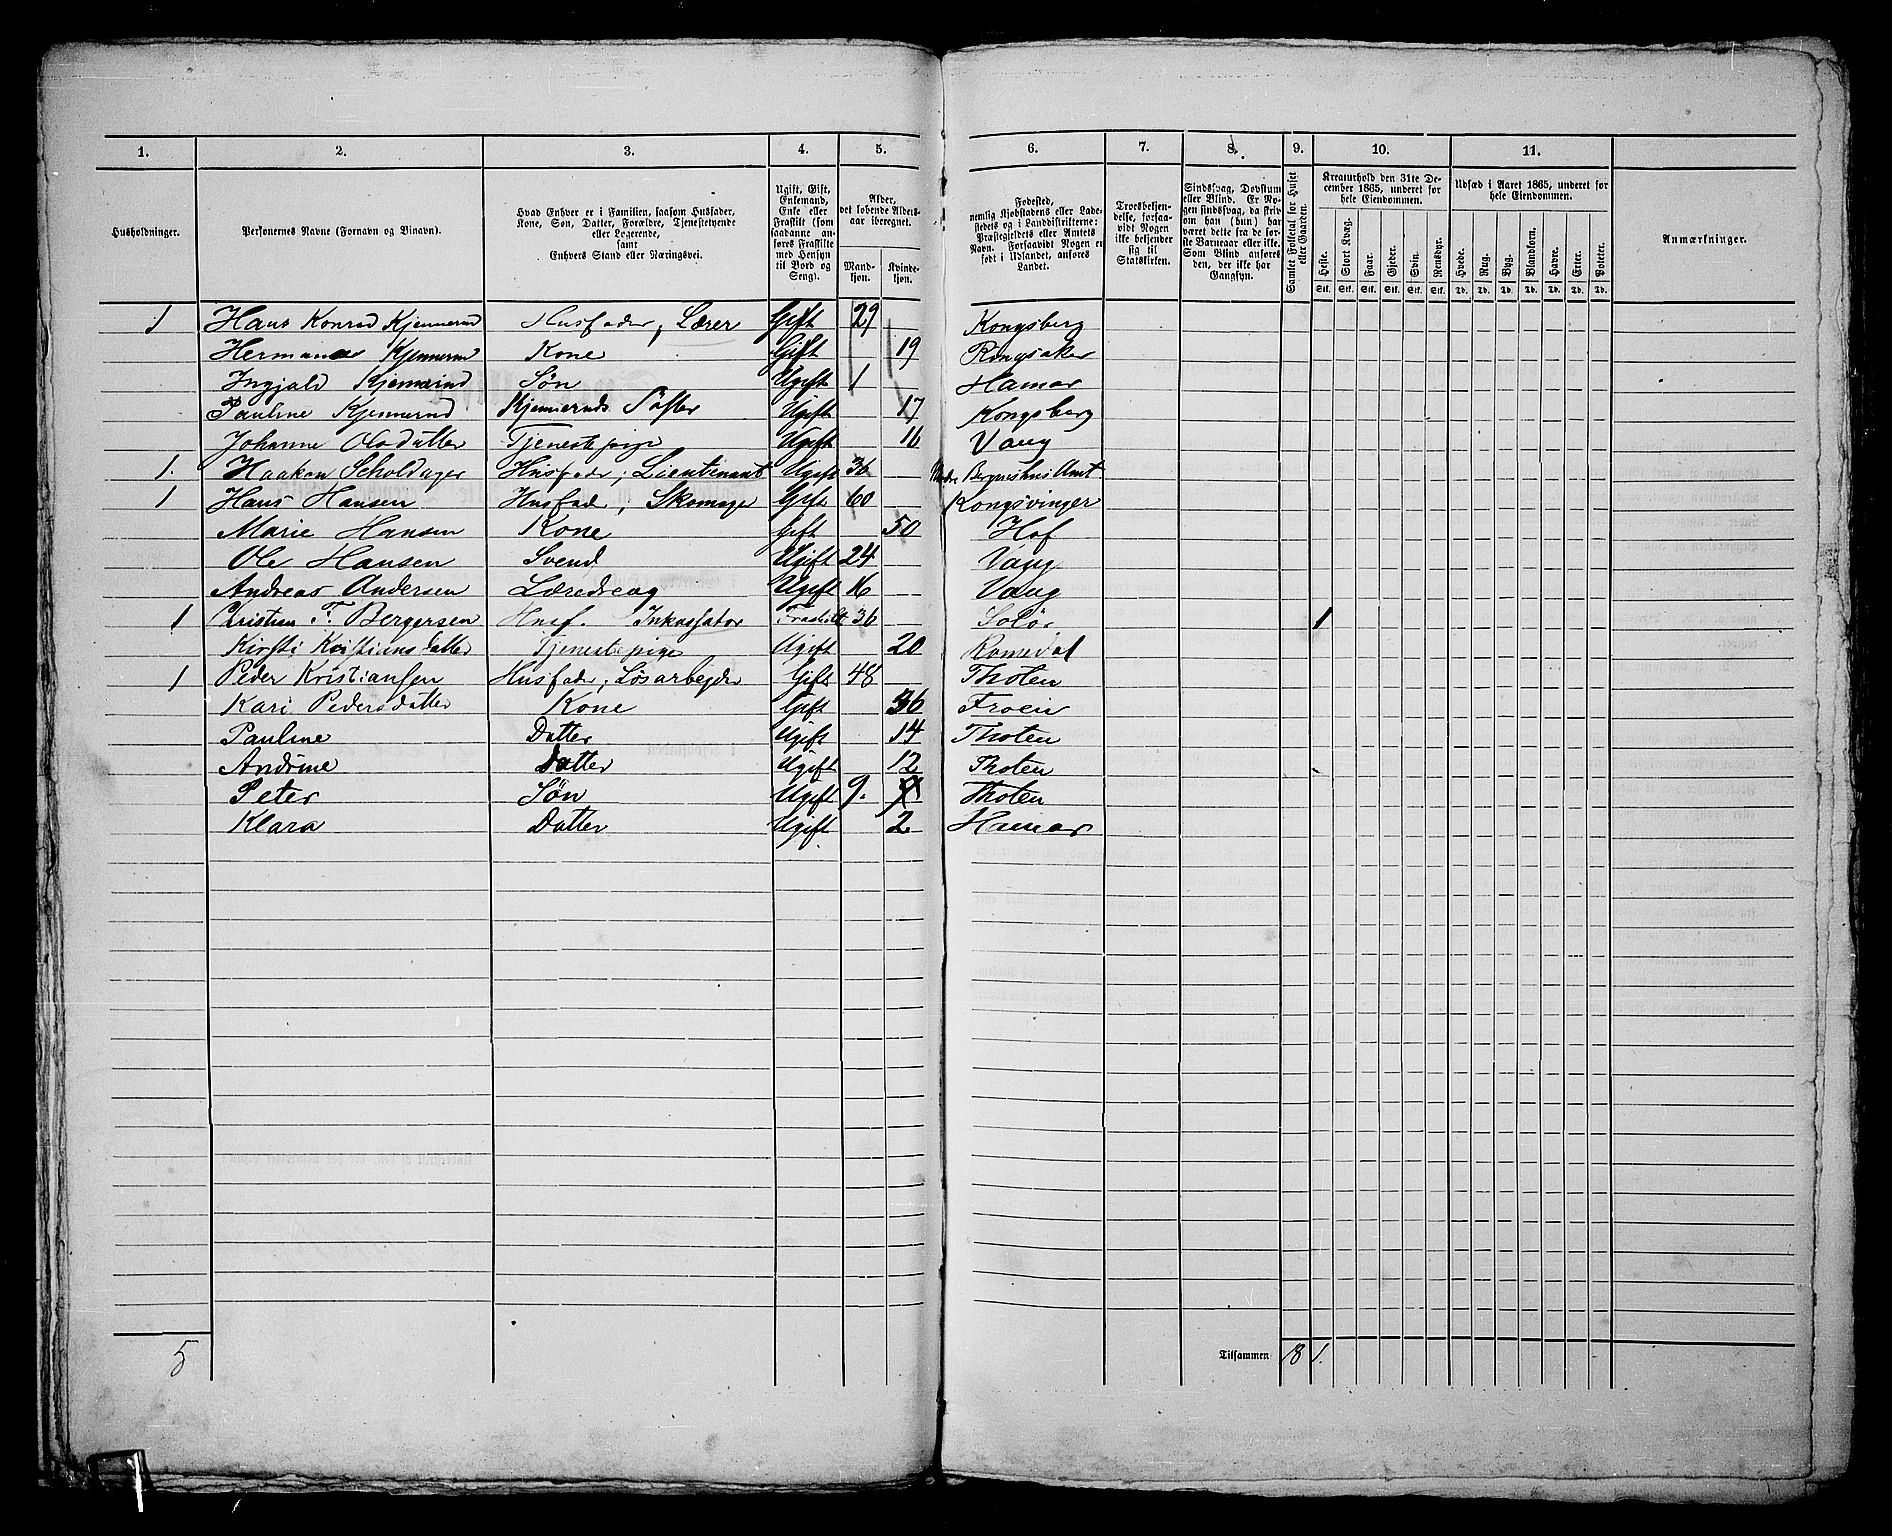 1. 2. 3. 4. 5. 6. 7. 8. 9. 10. 11.
Husholdninger.
Personernes Navne (Fornavn og Binavn).
Hvad Enhver er i Familien, saasom Husfader,
Kone, Søn, Datter, Forældre, Tjenestetyende
eller Logerende,
samt
Enhvers Stand eller Næringsvei.
Ugift, Gift,
Enkemand,
Enke eller
Fraskilt (som
saadanne an-
føres Fraskilte
med Hensyn
til Bord og
Seng).
Alder,
det løbende Alders-
aar iberegnet.
Mand-
kjøn.
Kvinde-
kjøn.
Fødested,
nemlig Kjøbstadens eller Lade-
stedets og i Landdistrikterne:
Præstegjeldets eller Amtets
Navn. Forsaavidt Nogen er
født i Udlandet, anføres
Landet.
Troesbekjen-
delse, forsaa-
vidt Nogen
ikke bekjender
sig til
Statskirken.
Sindssvag, Døvstum
eller Blind. Er No-
gen sindssvag, da skriv
om han (hun) har
været dette fra de før-
ste Barneaar eller ikke.
Som Blind anføres
den, der ikke har
Gangsyn.
Samlet Folketal for Huset
eller Gaarden.
Kreaturhold den 31te De-
cember 1865, underet før
hele Eiendommen.
Heste. Stort Kvæg. Faar. Gjeder. Svin. Rensdyr.
Stk. Stk. Stk. Stk. Stk. Stk.
Udsæd i Aaret 1865, underet før
hele Eiendommen.
Hvede. Rug. Byg. Blandkorn. Havre. Erter. Poteter.
Td. Td. Td. Td. Td. Td. Td.
Anmærkninger.
1 Hans Konrad Kjennerud Husfader, Lærer Gift 29 Kongsberg
Kjennerud Kone Gift 19 Ringsaker
Ingjald Søn Ugift 1 Hamar
Pauline Kjennerud Kjenneruds Søster Ugift 17 Kongsberg
Johanne Olsdatter Tjenestepige Ugift 16 Vang
1. Haakon Scholdager Husfader; Lieutenant Ugift 36 Nordre Bergenhus Amt
1 Hans Hansen Husfader; Skomager Gift 60 Kongsvinger
Marie Hansen Kone Gift 50 Hof
Ole Hansen Svend Ugift 24 Vang
Andreas Andersen Læredreng Ugift 16 Vang
1 Christian F. Bergersen Husf. Inkassator Fraskilt 36 Solør 1
Kirsti Kristiansdatter Tjenestepige Ugift 20 Romedal
1 Peder Kristiansen Husfader; Løsarbejder Gift 48 Thoten
Kari Pedersdatter Kone Gift 36 Froen
Pauline Datter Ugift 14 Thoten
Andrine Datter Ugift 12 Thoten
Peter Søn Ugift 9. Thoten
Klara Datter Ugift 2 Hamar
5 Tilsammen 18 1.